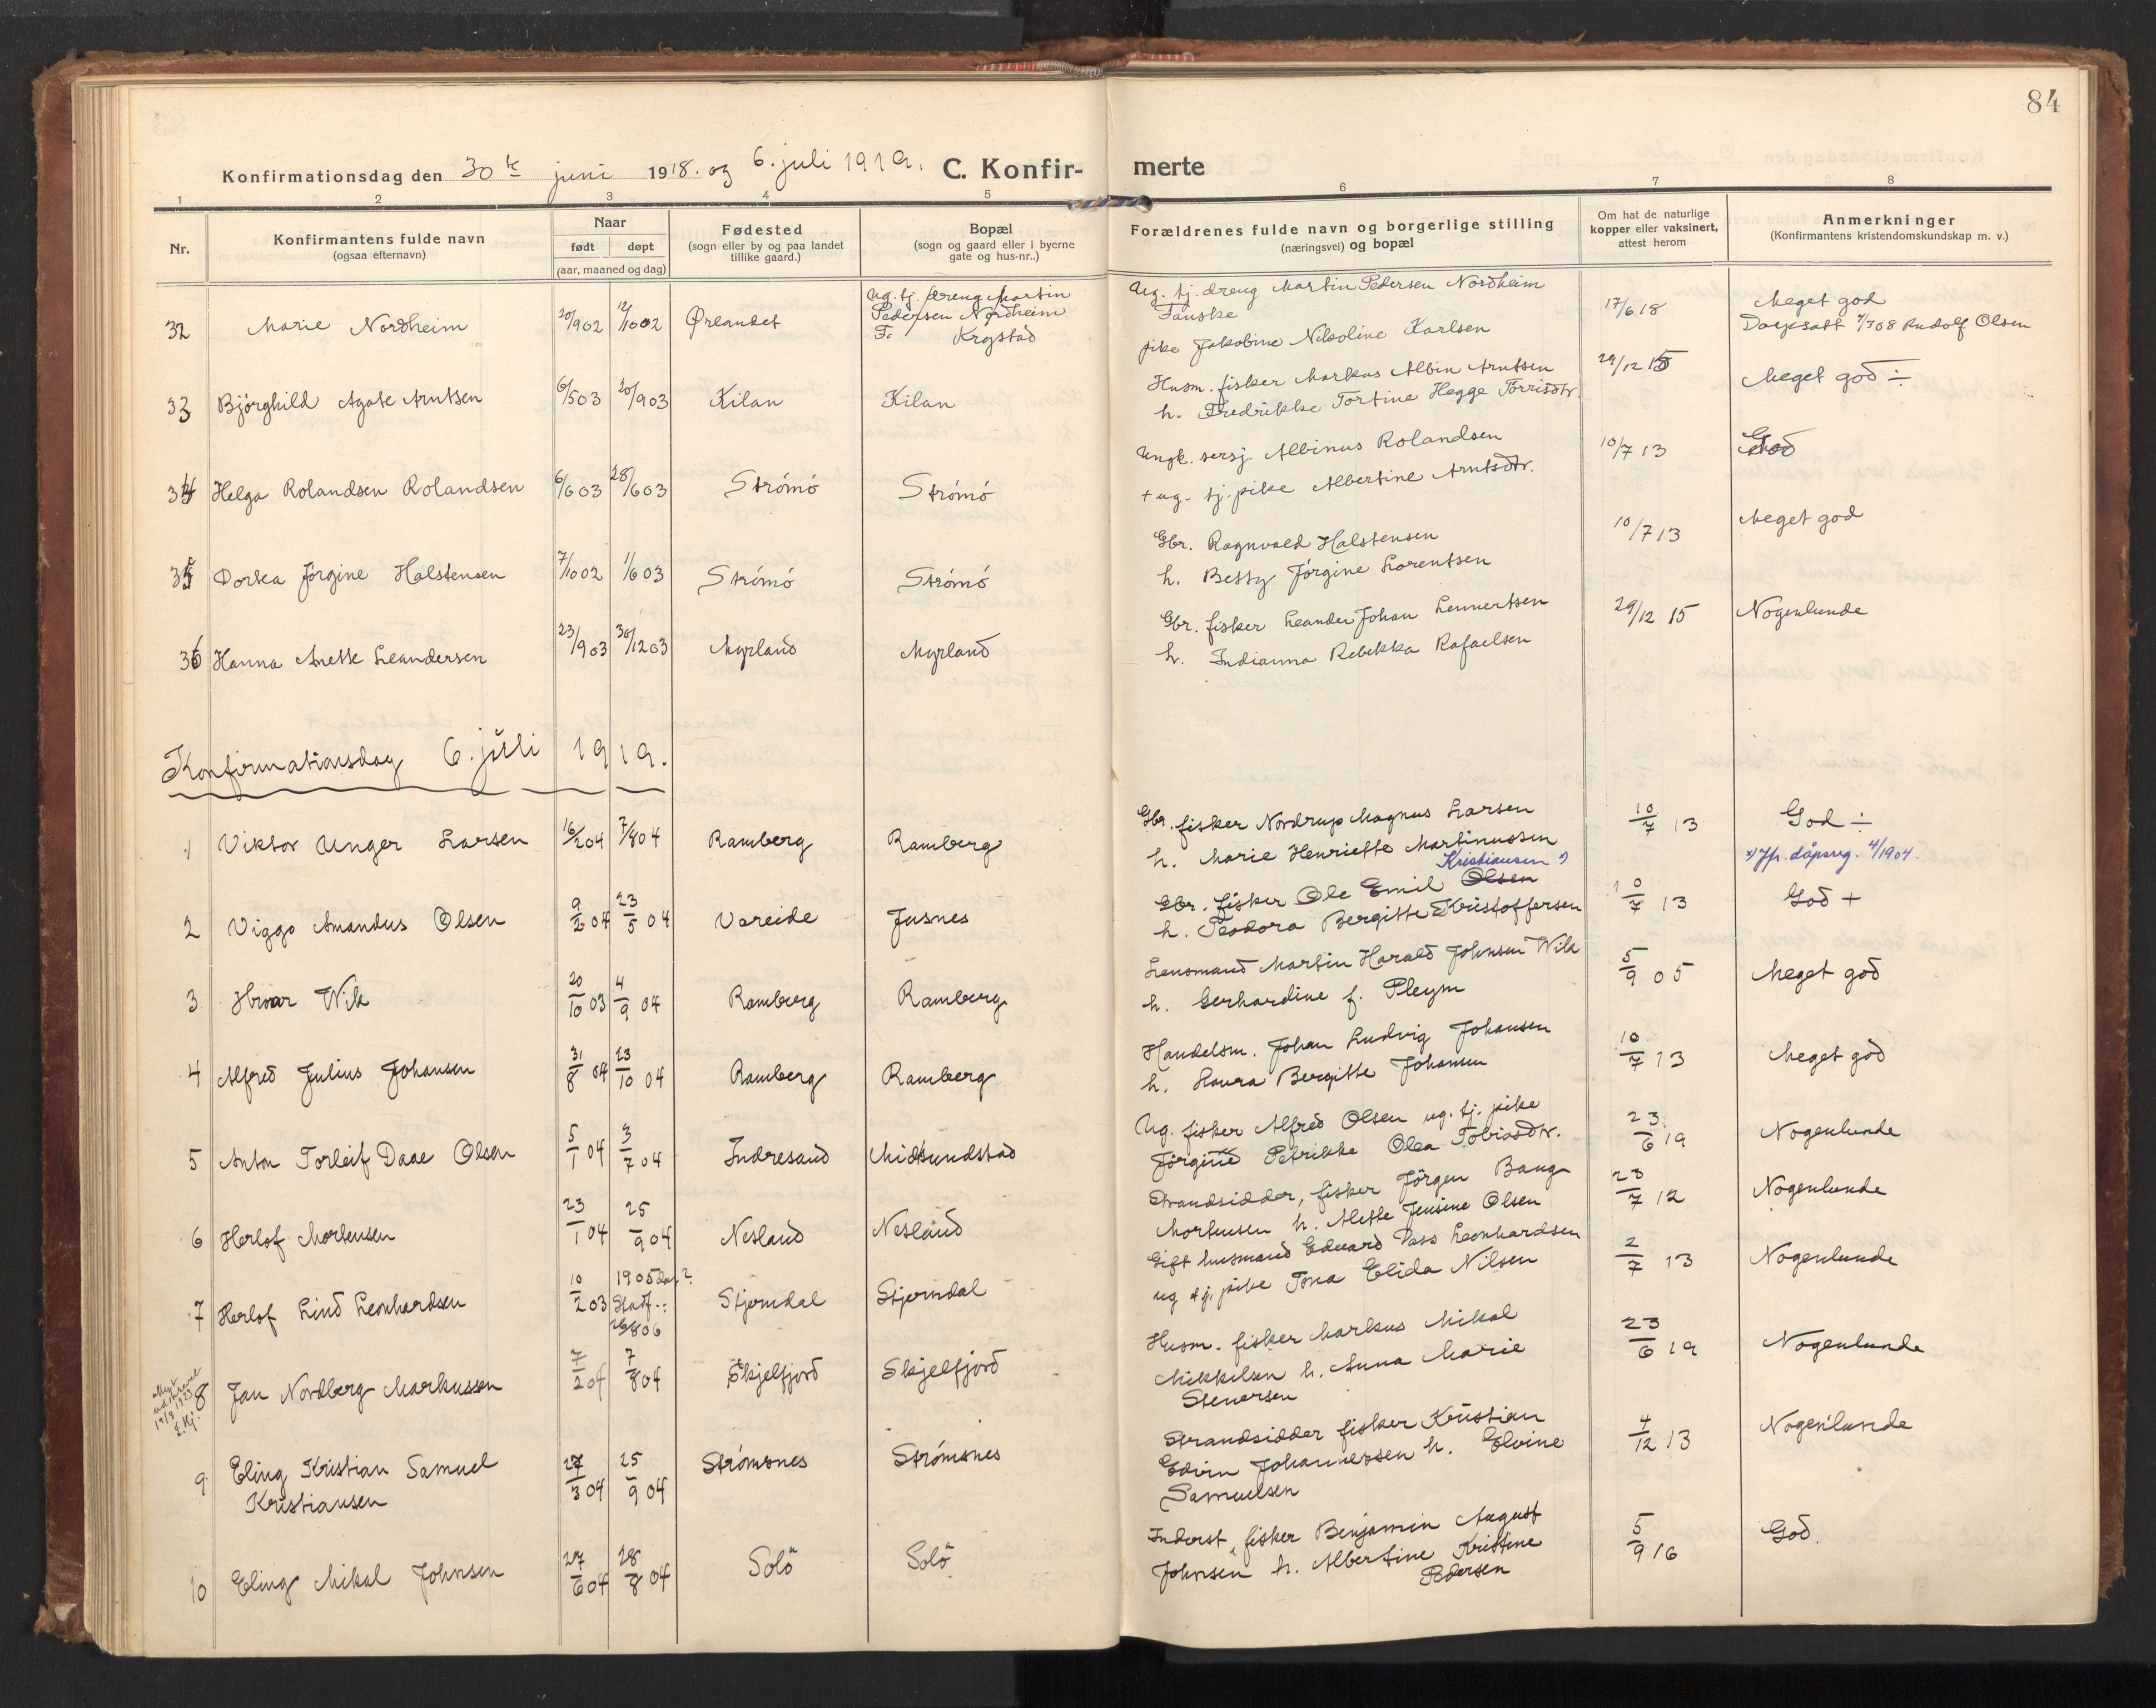 84
Konfirmationsdag den 30te juni 1918. og 6. juli 1919. C. Konfir- merte
1 2 3 4 5 6 7 8
Nr.
Konfirmantens fulde navn
(ogsaa efternavn)
Naar
født døpt
(aar, maaned og dag)
Fødested
(sogn eller by og paa landet
tillike gaard.)
Bopæl
(sogn og gaard eller i byerne
gate og hus-nr..)
Forældrenes fulde navn og borgerlige stilling
(næringsvei) og bopæl
Om hat de naturlige
kopper eller vaksinert,
attest herom
Anmerkninger
(Konfirmantens kristendomskundskap m. v.)
32 Marie Nordheim 20/9 02 12/10 02 Ørlandet
Ug. tj. dreng Martin
Pedersen Nordheim
F. Krystad
Ug. tj. dreng Martin Pedersen Nordheim
Fauske
pike Jakobine Nikoline Karlsen
17/6 18
Meget god
Daapsatt 1/7 08 Rudolf Olsen
33 Bjørghild Agate Arntsen 6/5 03 20/9 03 Kilan Kilan
Husm. fisker Markus Albin Arntsen
h. Fredrikke Tortine Hegge Torrisdtr.
29/12 15 Meget god ÷
34 Helga Rolandsen Rolandsen 6/6 03 28/6 03 Strömö Strömö
Ungk. sersj. Albinus Rolandsen
+ ug. tj. pike Albertine Arntsdtr.
10/7 13 God
35 Dorka Jörgine Halstensen 7/10 02 1/6 03 Strömö Strömö
Gbr. Ragnvald Halstensen
h. Bessy Jörgine Lorentsen
10/7 13 Meget god
36 Hanna Anette Leandersen 23/9 03 30/12 03 Myrland Myrland
Gbr. fisker Leander Johan Lennertsen
h. Indianna Rebekka Rafaelsen
29/12 15 Nogenlunde
Konfirmationsdag 6. juli 1919.
1 Viktor Unger Larsen 16/2 04 7/8 04 Ramberg Ramberg
Gbr. fisker Nordrup Magnus Larsen
h. Marie Henriette Martinussen
10/7 13 God ÷
2 Viggo Amandus Olsen 9/2 04 23/5 04 Vareide Fusnes
Kristiansen x)
Gbr. fisker Ole Emil Olsen
h. Teodora Bergitte Kristoffersen
10/7 13
x) Jfr. dåpsreg. 4/1904.
God +
3 Hroar Wik 20/10 03 4/9 04 Ramberg Ramberg
Lensmand Martin Harald Johnsen Wik
h. Gerhardine f. Pleym
5/9 05 Meget god
4 Alfred Julius Johansen 31/8 04 23/10 04 Ramberg Ramberg
Handelsm. Johan Ludvig Johansen
h. Laura Bergitte Johansen
10/7 13 Meget god
5 Anton Torleif Daae Olsen 5/1 04 3/7 04 Indresand Midtsundstad
Ug. fisker Alfred Olsen ug. tj. pike
Jörgine Petrikke Olea Tobiasdtr.
23/6 19 Nogenlunde
6 Herlof Mortensen 23/1 04 25/9 04 Nesland Nesland
Strandsidder, fisker Jörgen Bang
Mortensen h. Alette Jensine Olsen
23/7 12 Nogenlunde
7 Herlof Lind Leonhardsen 10/2 03
1905
Stadf.:
26/8 06
Stjerndal Stjerndal
Gift husmand Edvard Dass Leonhardsen
ug tj. pike Tona Elida Nilsen
2/7 13 Nogenlunde
Attest
19/3 1923
8 Jan Nordberg Markussen 7/2 04 7/8 04 Skjelfjord Skjelfjord
Husm. fisker Markus Mikal
Mikkelsen h. Anna Marie
Stenersen
23/6 19 Nogenlunde
9 Eling Kristian Samuel
Kristiansen
27/3 04 25/9 04 Strömsnes Strömsnes
Strandsidder fisker Kristian
Edvin Johannessen h. Elvine
Samuelsen
4/12 13 Nogenlunde
10 Eling Mikal Johnsen 27/6 04 28/8 04 Solö Solö
Inderst, fisker Benjamin August
Johnsen h. Albertine Kristine
Pedersen
5/9 16 God.